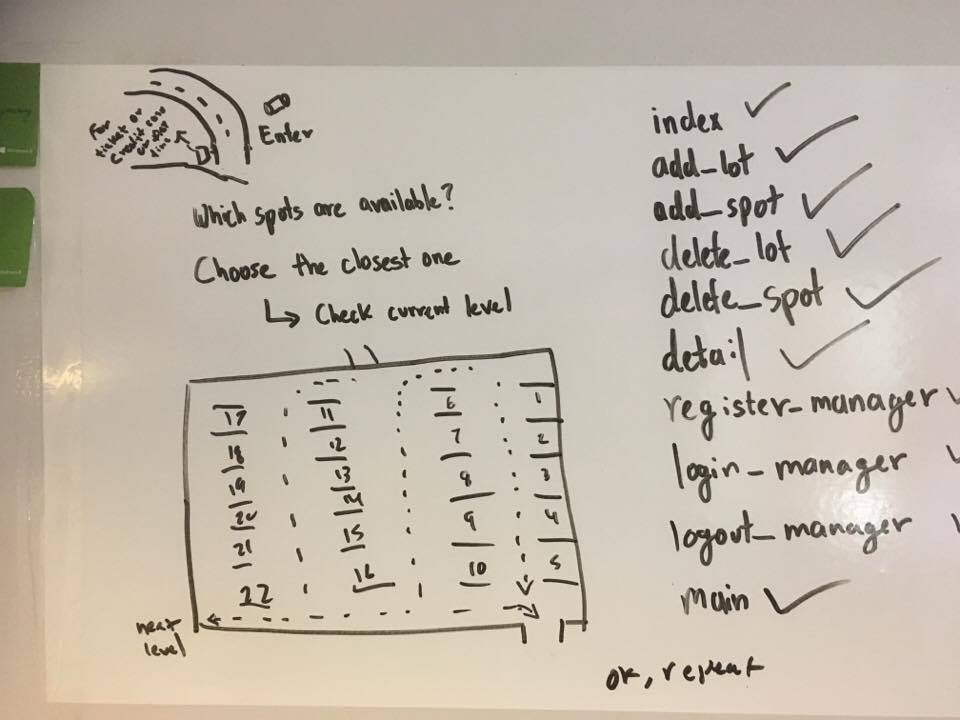 For
ticket or
credit card
Enter
Which spots are available?
Choose the closest one
Check current level
17
18
19
20
21
22
11
12
13
14
15
16
6
7
8
9
10
1
2
3
4
5
next
level
index
add_lot
add_spot
delete_lot
delete_spot
detail
register_manager
login_manager
logout_manager
main
ok, repeat